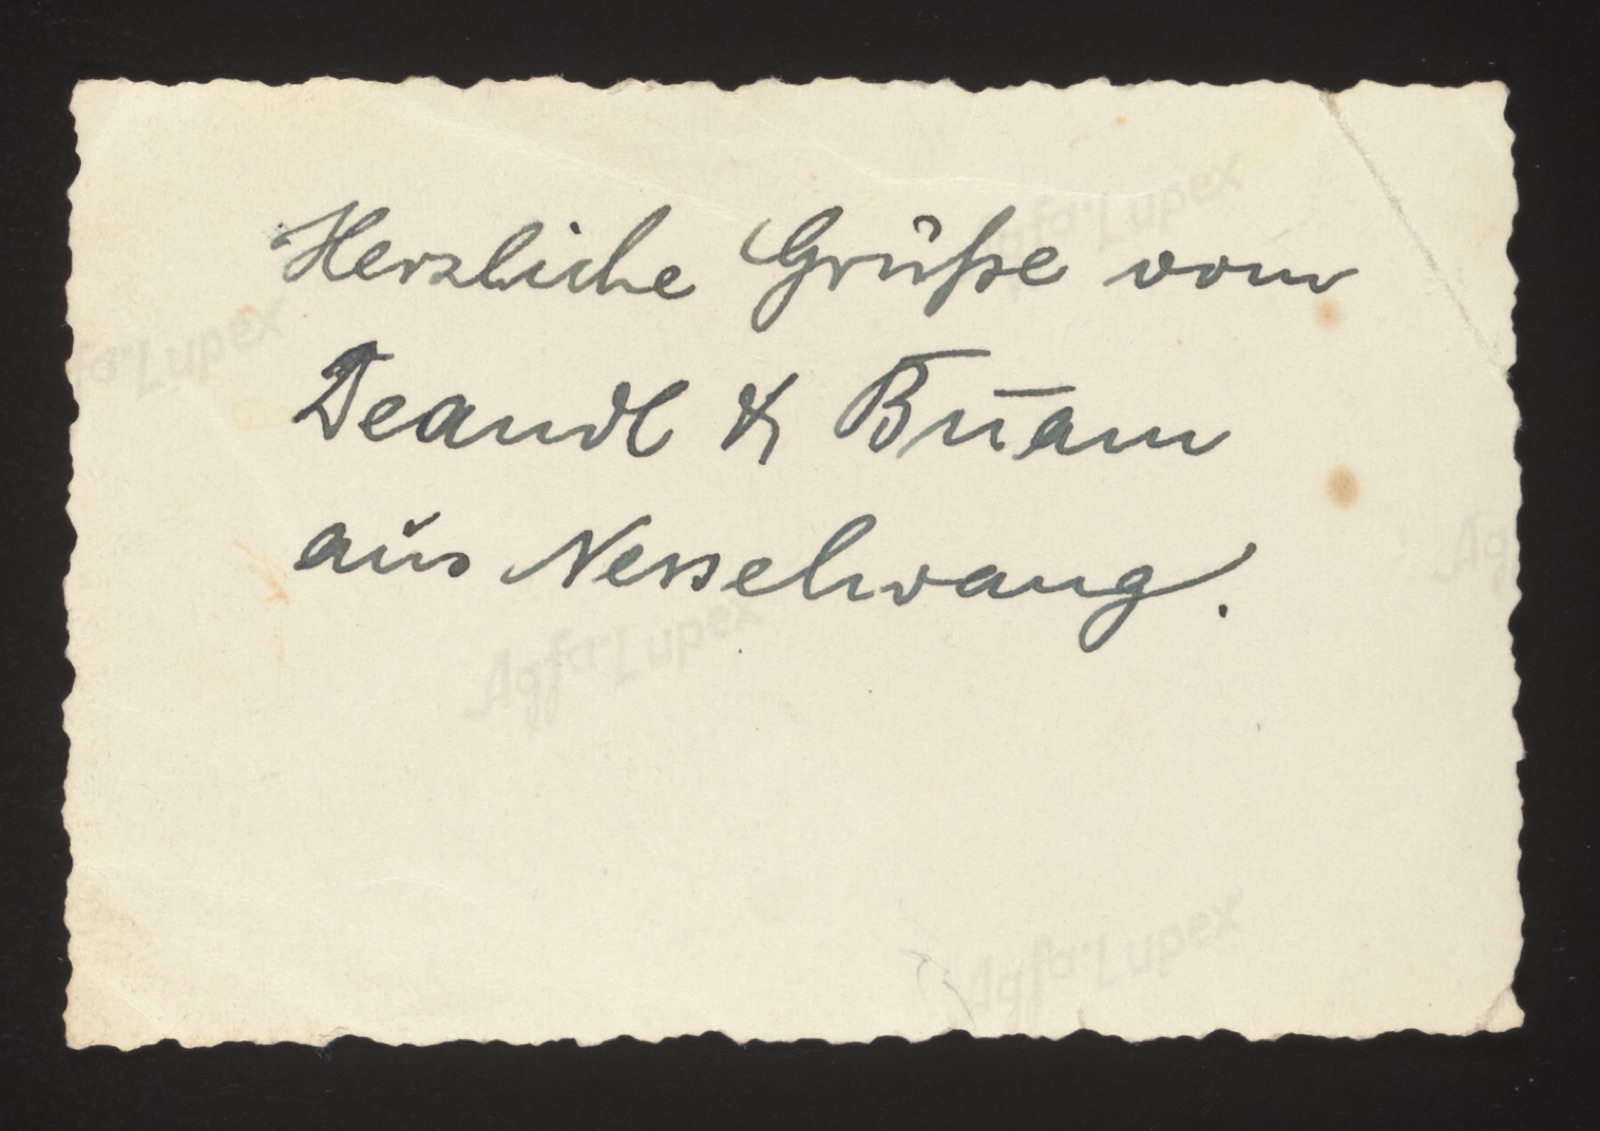 Agfa-Lupex
Herzliche Grüße vom
Agfa-Lupex
Deandl & Buam
aus Nesselwang.
Agfa-Lupex
Agfa-Lupex